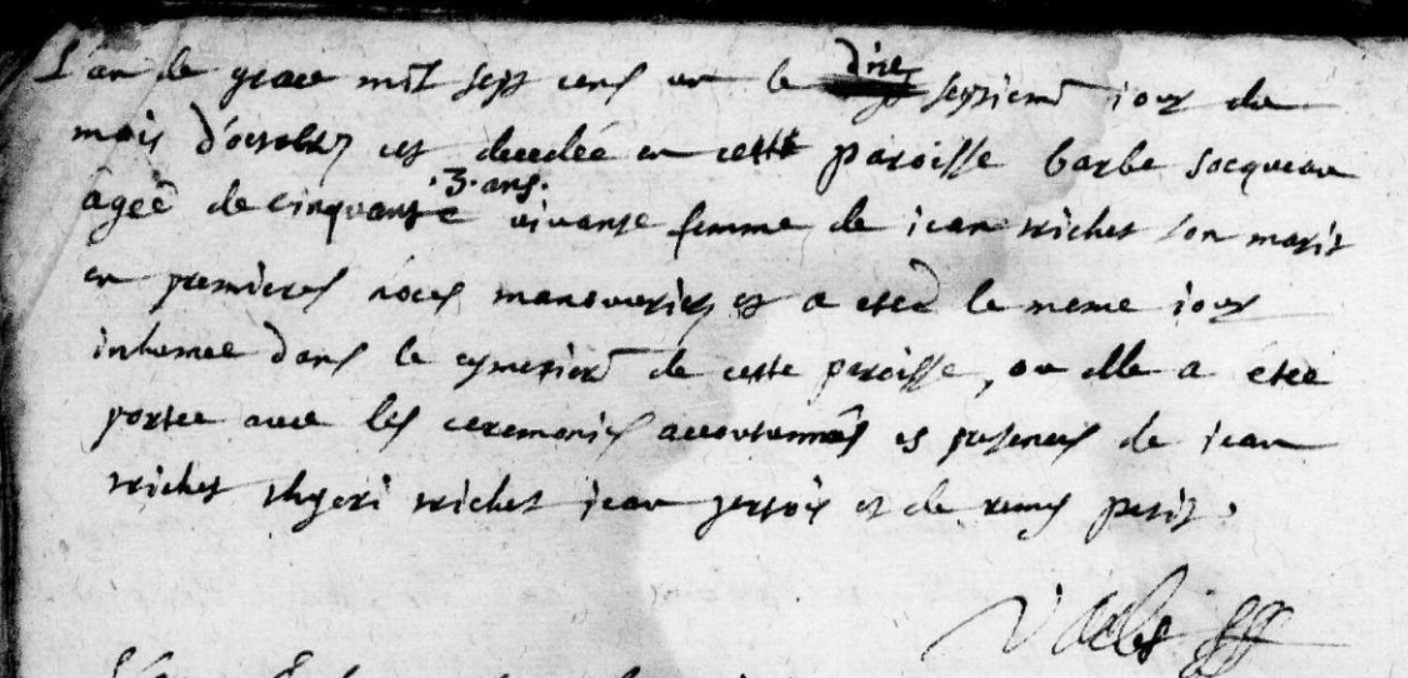 L'an de grace mil sept cens un le dix septieme jour du
mois d'octobre est decedée en cette paroisse barbe Jacqueau
âgeê de cinquante .3. ans. vivante femme de jean trichet son marit
en premieres nôces manouvrier et a eteé le meme jour
inhumee dans le cymetiere de cette paroisse, ou elle a eteé
portee avec les ceremonies accoutumées es presences de jean
trichet trichet jean et de remy petit.